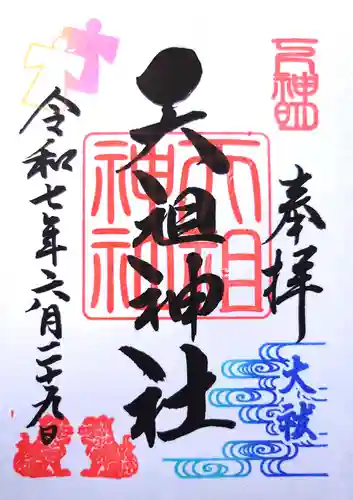 奉拝
天祖神社
天祖神社
大祓
令和七年六月二十九日